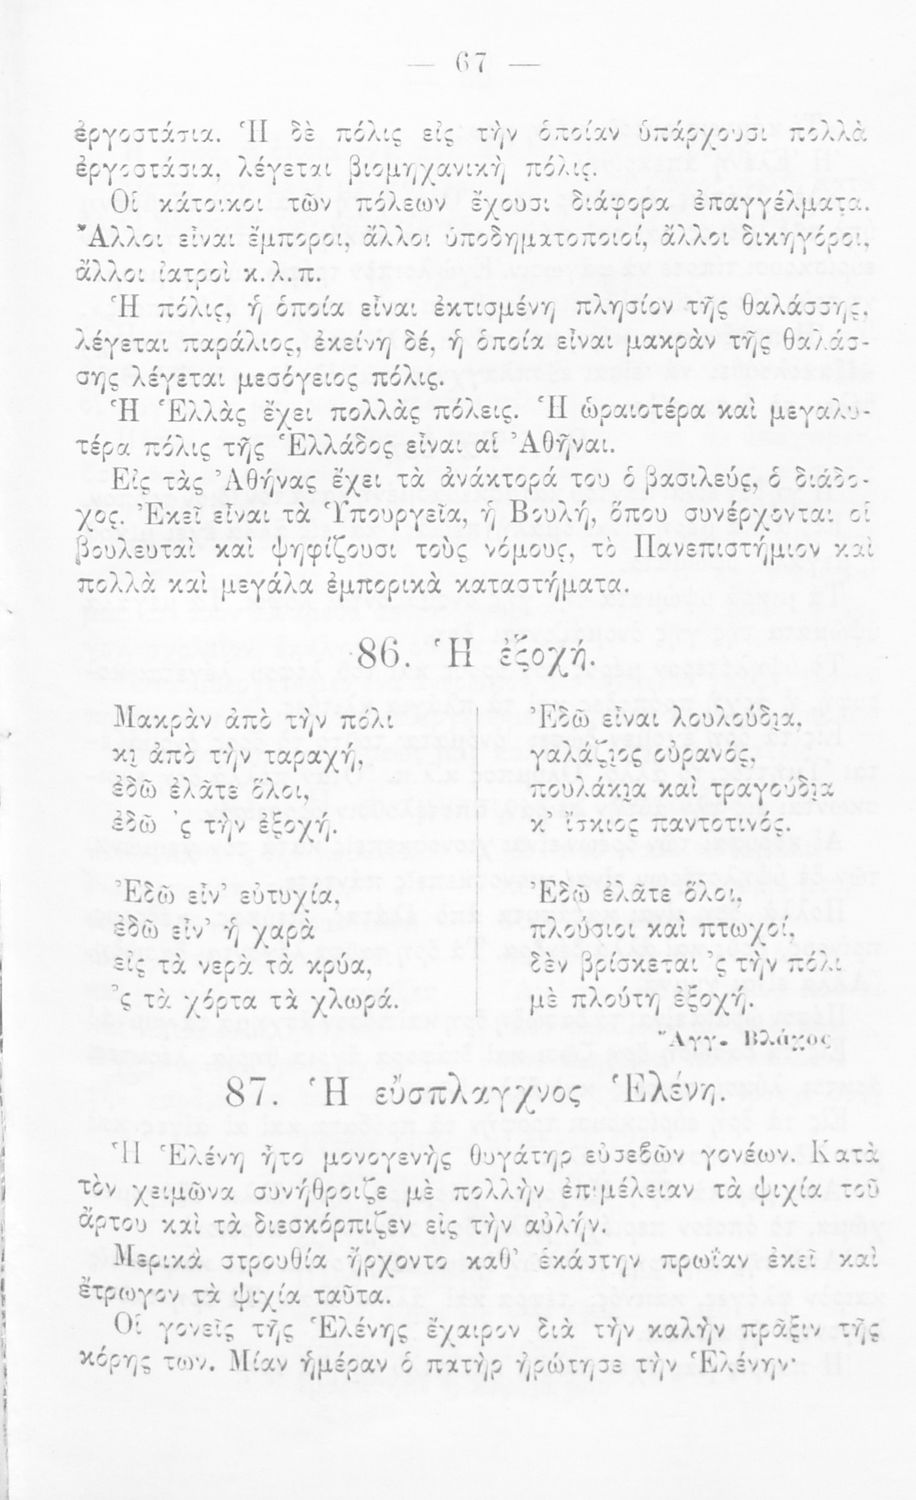 — 67 —
ἐργοστάσια. Ἡ δὲ πόλις εἰς τὴν ὁποίαν ὑπάρχουσι πολλὰ
ἐργοστάσια, λέγεται βιομηχανικὴ πόλις.
Οἱ κάτοικοι τῶν πόλεων ἔχουσι διάφορα ἐπαγγέλματα.
Ἄλλοι εἶναι ἔμποροι, ἄλλοι ὑποδηματοποιοί, ἄλλοι δικηγόροι,
ἄλλοι ἰατροὶ κ.λ.π.
Ἡ πόλις, ἡ ὁποία εἶναι ἐκτισμένη πλησίον τῆς θαλάσσης,
λέγεται παράλιος, ἐκείνη δέ, ἡ ὁποία εἶναι μακρὰν τῆς θαλάσ-
σης λέγεται μεσόγειος πόλις.
Ἡ Ἑλλὰς ἔχει πολλὰς πόλεις. Ἡ ὡραιοτέρα καὶ μεγαλυ-
τέρα πόλις τῆς Ἑλλάδος εἶναι αἱ Ἀθῆναι.
Εἰς τὰς Ἀθήνας ἔχει τὰ ἀνάκτορά του ὁ βασιλεύς, ὁ διάδο-
χος. Ἐκεῖ εἶναι τὰ Ὑπουργεῖα, ἡ Βουλή, ὅπου συνέρχονται οἱ
βουλευταὶ καὶ ψηφίζουσι τοὺς νόμους, τὸ Πανεπιστήμιον καὶ
πολλὰ καὶ μεγάλα ἐμπορικὰ καταστήματα.
86. Ἡ ἐξοχή.
Μακρὰν ἀπὸ τὴν πόλι
κι ἀπὸ τὴν ταραχή,
ἐδῶ ἐλᾶτε ὅλοι,
ἐδῶ ᾿ς τὴν ἐξοχή.
Ἐδῶ εἶν᾿ εὐτυχία,
ἐδῶ εἶν᾿ ἡ χαρὰ
εἰς τὰ νερὰ τὰ κρύα,
᾿ς τὰ χόρτα τὰ χλωρά.
Ἐδῶ εἶναι λουλούδια,
γαλάζιος οὐρανός,
πουλάκια καὶ τραγούδια
κ᾿ ἴσκιος παντοτινός.
Ἐδῶ ἐλᾶτε ὅλοι,
πλούσιοι καὶ πτωχοί,
δὲν βρίσκεται ᾿ς τὴν πόλι
μὲ πλούτη ἐξοχή.
Ἀγγ. Βλάχος
87. Ἡ εὔσπλαγχνος Ἑλένη.
Ἡ Ἑλένη ἦτο μονογενὴς θυγάτηρ εὐσεβῶν γονέων. Κατὰ
τὸν χειμῶνα συνήθροιζε μὲ πολλὴν ἐπιμέλειαν τὰ ψιχία τοῦ
ἄρτου καὶ τὰ διεσκόρπιζεν εἰς τὴν αὐλήν.
Μερικὰ στρουθία ἤρχοντο καθ᾿ ἑκάστην πρωΐαν ἐκεῖ καὶ
ἔτρωγον τὰ ψιχία ταῦτα.
Οἱ γονεῖς τῆς Ἑλένης ἔχαιρον διὰ τὴν καλὴν πρᾶξιν τῆς
κόρης των. Μίαν ἡμέραν ὁ πατὴρ ἠρώτησε τὴν Ἑλένην·